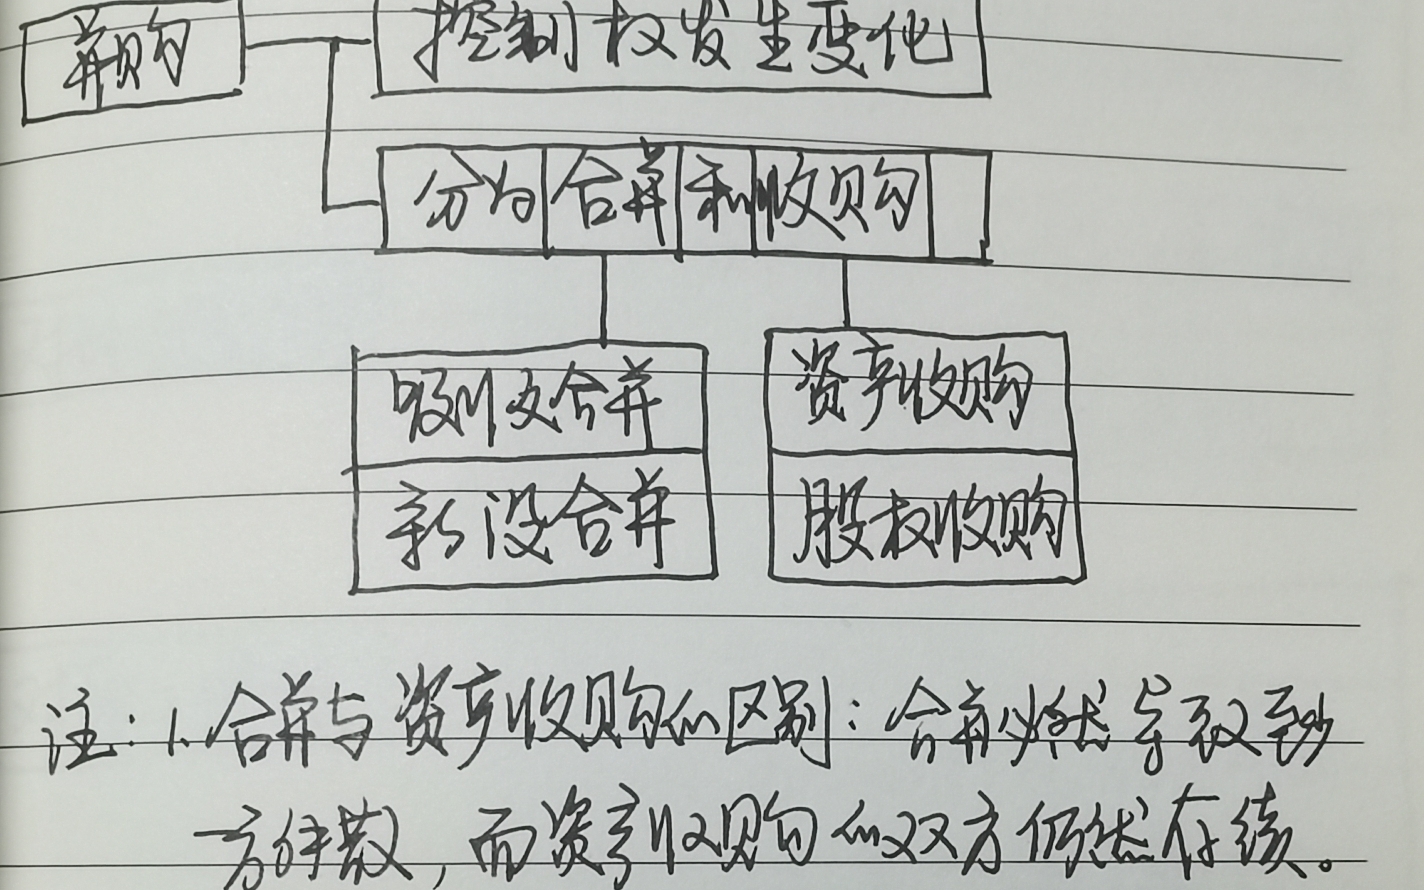 并购 控制权发生变化
分为 合并 和 收购
吸收合并 资产收购
新设合并 股权收购
注：1.合并与资产收购的区别：合并必然导致至少
一方解散，而资产收购的双方仍然存续。